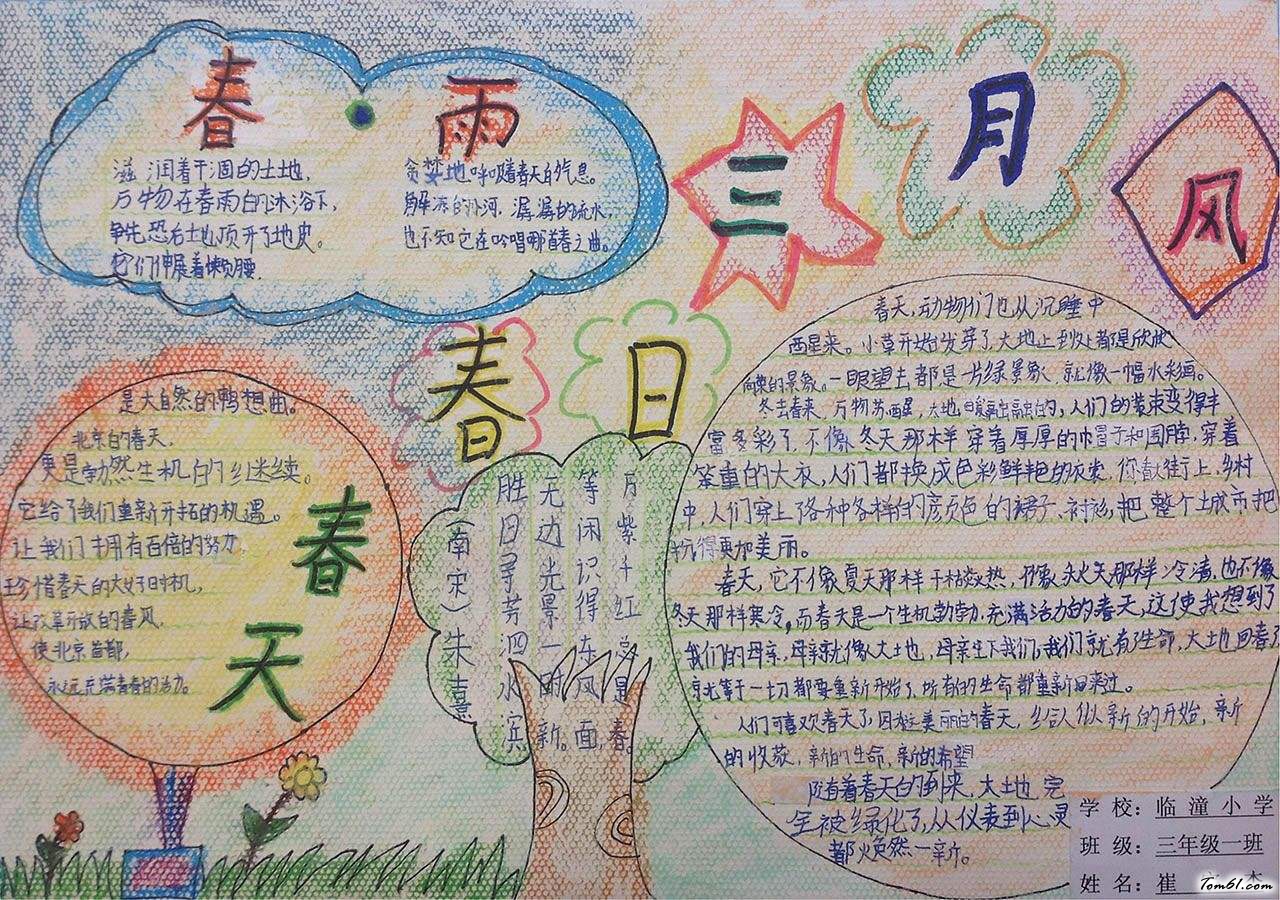 春·雨
滋润着干涸的土地，
万物在春雨的沐浴下，
争先恐后土地顶开了地皮。
它们伸展着懒腰
贪婪地呼吸着春天的气息。
解冻的小河，潺潺的流水
也不知它在吟唱哪首春之曲。
三月风
春日
胜日寻芳泗水滨
无边光景一时新。
等闲识得东风面，
万紫千红总是春。
（南宋）朱熹
春天
是大自然的鸭想曲。
北京的春天，
更是勃然生机的继续。
它给了我们重新开拓的机遇。
让我们拥有百倍的努力
珍惜春天的大好时机，
让改革开放的春风，
使北京首都，
永远充满青春的活力。
春天，动物们也从沉睡中
西星来。小草开始发芽了大地上到处都是欣欣
向荣的景象。一眼望去都是一片绿景象，就像一幅水彩画。
冬去春来，万物苏西星，大地暖融融的，人们的装束变得丰
富多彩了，不像冬天那样穿着厚厚的帽子和围脖，穿着
笨重的大衣，人们都换成色彩鲜艳的衣裳，你看大街上，乡村
中，人们穿上了各种各样的颜色的裙子、衬衫，把整个城市把
扮得更加美丽。
春天，它不像夏天那样干枯炎热，不像秋天那样冷清，也不像
冬天那样寒冷，而春天是一个生机勃勃，充满活力的春天，这使我想到了
我们的母亲，母亲就像大地，母亲生下我们，我们就有了生命，大地回春
就等于一切都要重新开始了，所有的生命都重新回来过。
人们可喜欢春天了，因为这美丽的春天，给人似新的开始，新
的收获，新的生命，新的希望
随着春天的到来，大地完
全被绿化了，从仪表到心灵
都火焕然一新。
学校：临潼小学
班级：三年级一班
姓名：崔
Tom61.com